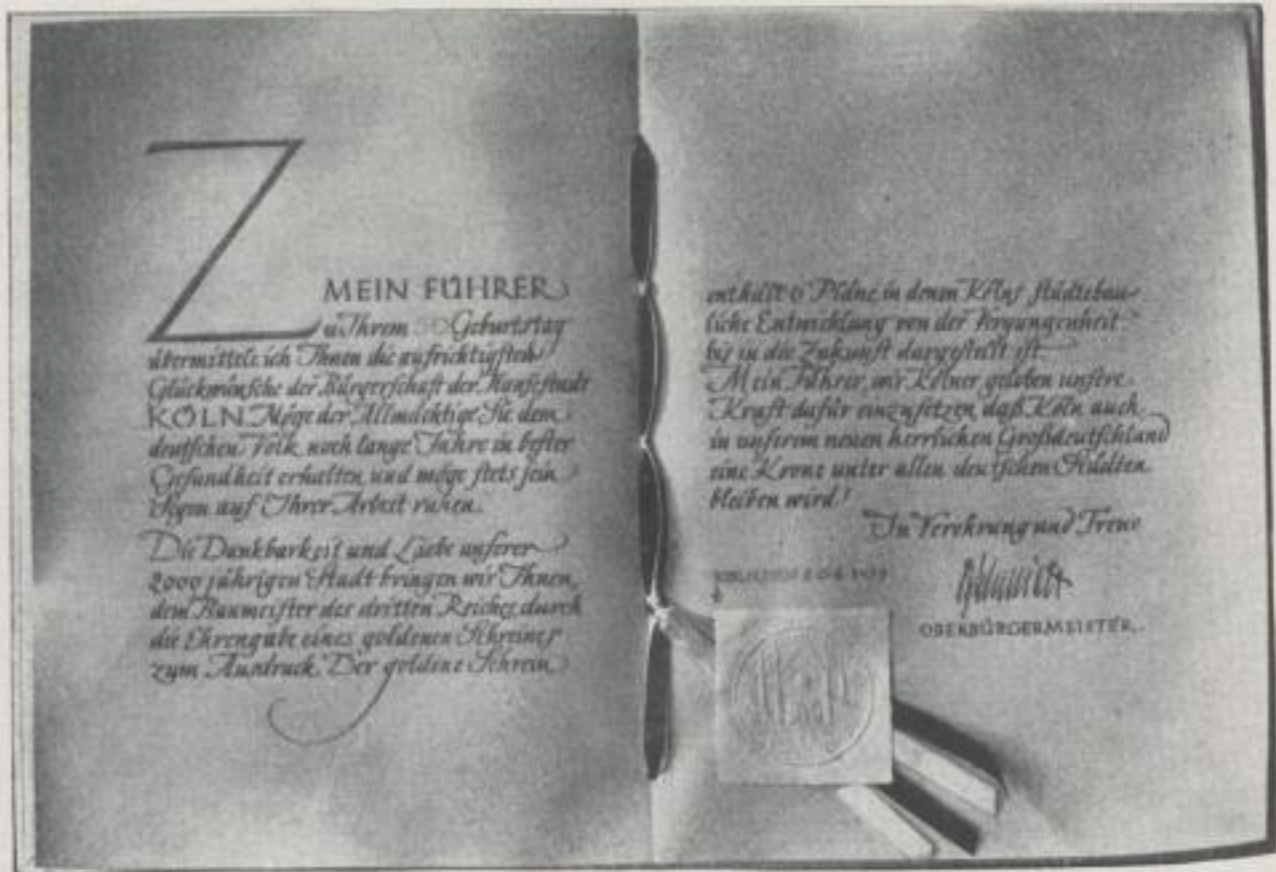 MEIN FÜHRER
Zu Ihrem 50 Geburtstag
übermittele ich Ihnen die aufrichtigsten
Glückwünsche der Bürgerschaft der Hansestadt
KÖLN. Möge der Allmächtige Sie dem
deutschen Volk noch lange Jahre in bester
Gesundheit erhalten und möge stets sein
Segen auf Ihrer Arbeit ruhen.
Die Dankbarkeit und Liebe unserer
2000 jährigen Stadt bringen wir Ihnen,
dem Baumeister des dritten Reiches, durch
die Ehrengabe eines goldenen Schreines
zum Ausdruck. Der goldene Schrein
enthält 6 Pläne, in denen Kölns städtebau-
liche Entwicklung von der Vergangenheit
bis in die Zukunft dargestellt ist.
Mein Führer, wir Kölner geloben unsere
Kraft dafür einzusetzen, daß Köln auch
in unserem neuen herrlichen Großdeutschland
eine Krone unter allen deutschen Städten
bleiben wird!
In Verehrung und Treue
Schmidt
OBERBÜRGERMEISTER